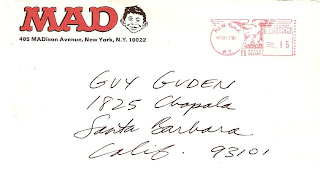 MAD
485 MADison Avenue, New York, N.Y. 10022
N.Y.
GUY GUDEN
1825 Chapala
Santa Barbara
Calif. 93101